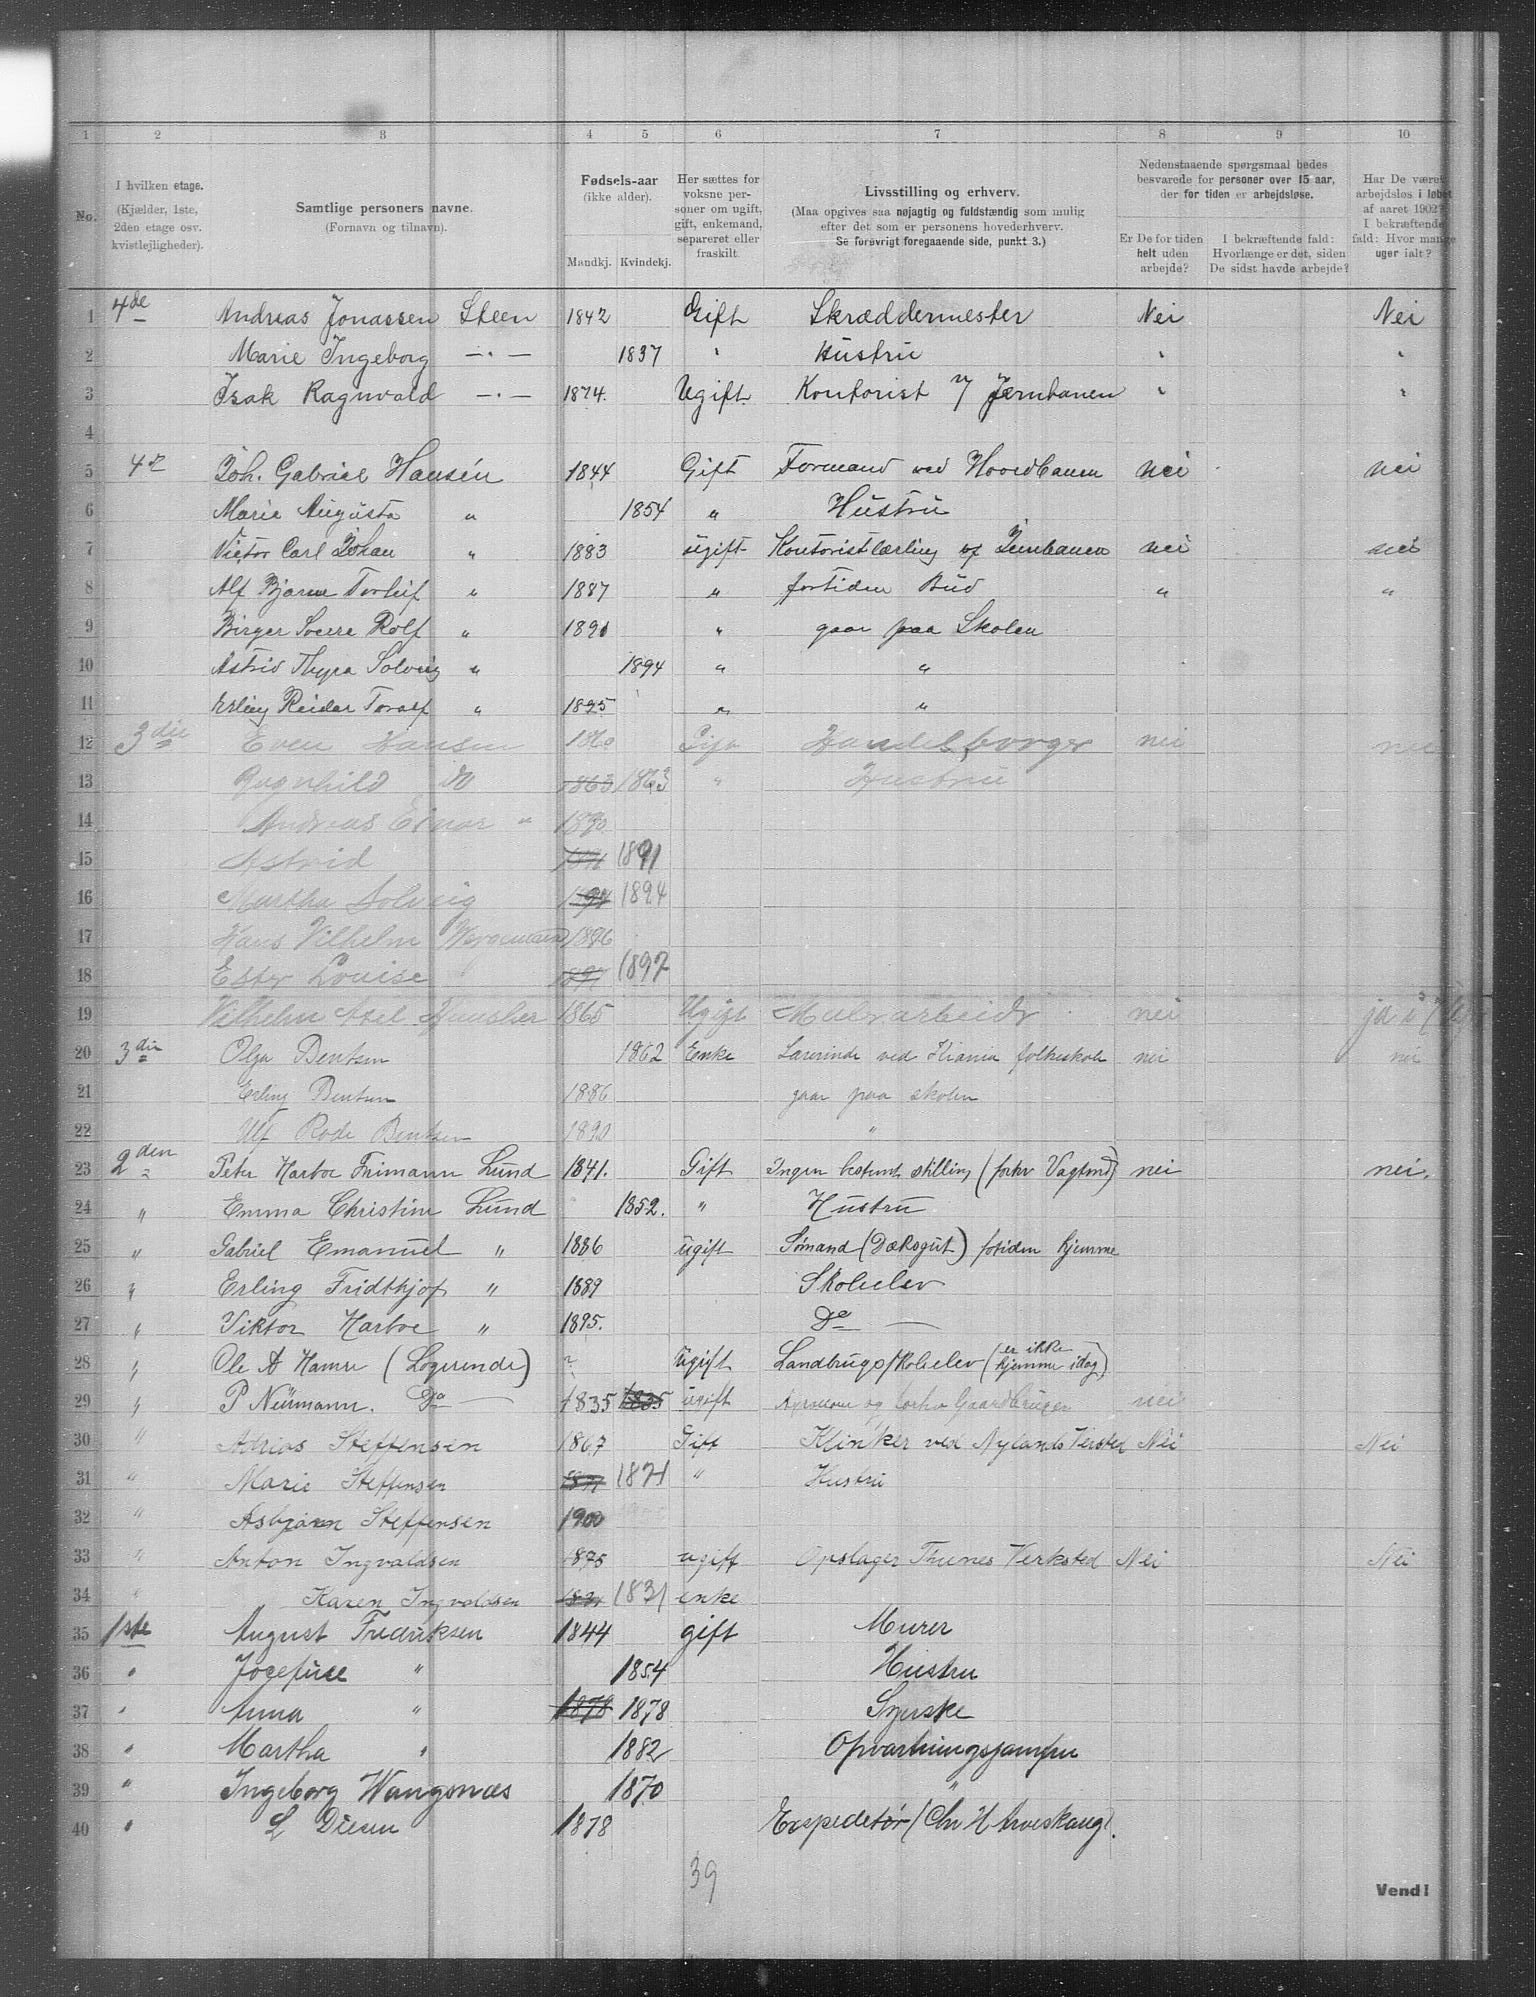 1 2 3 4 5 6 7 8 9 10
No.
I hvilken etage. (Kjælder, 1ste, 2den etage osv. kvistlejligheder).
Samtlige personers navne. (Fornavn og tilnavn).
Fødsels-aar (ikke alder). Mandkj. Kvindekj.
Her sættes for voksne personer om ugift, gift, enkemand, separeret eller fraskilt.
Livsstilling og erhverv. (Maa opgives saa nøjagtig og fuldstændig som mulig efter det som er personens hovederhverv. Se forøvrigt foregaaende side, punkt 3.)
Nedenstaaende spørgsmaal bedes besvarede for personer over 15 aar, der for tiden er arbejdsløse.
Er De for tiden helt uden arbejde?
I bekræftende fald: Hvorlænge er det, siden De sidst havde arbejde?
Har De været arbejdsløs i løbet af aaret 1902? I bekræftende fald: Hvor mange uger ialt?
1 4de Andreas Jonassen Steen 1842 Gift Skræddermester Nei Nei
2 Marie Ingeborg —"— 1837 " Hustru " "
3 Isak Ragnvald —"— 1874. Ugift Kontorist v/ Jernbanen " "
4
5 4de Joh. Gabriel Hansén 1844 Gift Formand ved Hovedbanen nei nei
6 Marie Augusta " 1854 " Hustru
7 Victor Carl Johan " 1883 ugift Kontoristlærling v/ Jernbanen nei nei
8 Alf Bjarne Torleif " 1887 " fortiden Bud " "
9 Birger Sverre Rolf " 1890 " gaar paa Skolen
10 Astrid Thyra Solveig " 1894 " "
11 Erling Reidar Toralf " 1895 " "
12 3die Even Hansen 1860 Gift Handelsborger nei nei
13 Ragnhild do 1863 1863 " Hustru
14 Andreas Einar " 1890
15 Astrid 1891 1891
16 Martha Solveig 1894 1894
17 Hans Vilhelm 1896
18 Ester Louise 1897 1897
19 Vilhelm Axel 1865 Ugift Murarbeider nei ja i
20 3die Olga Bentsen 1862 Enke Lærerinde ved Kristiania folkeskole nei nei
21 Erling Bentsen 1886 gaar paa skolen
22 Ulf Rode Bentsen 1890 "
23 2den Peter Harboe Frimann Lund 1841. Gift Ingen bestemt stilling (forhv Vagtmd) nei nei.
24 " Emma Christine Lund 1852. " Hustru
25 " Gabriel Emanuel " 1886 ugift Sømand (Dæksgut) fortiden hjemme
26 " Erling Fridthjof " 1889 Skoleelev
27 " Viktor Harboe " 1895. Do —
28 " Ole A Hamre (Logerende) ? Ugift Landbrugsskoleelev (er ikke hjemme idag)
29 " P Neumann. Do — 1835 1835 ugift og forhv Gaardbruger nei
30 " Adrias Steffensen 1867 Gift Klinker ved Nylands Versted Nei Nei
31 " Marie Steffensen 1871 1871 " Hustru
32 " Asbjørn Steffensen 1900
33 " Anton Ingvaldsen 1875 ugift Opslager Thunes Verksted Nei Nei
34 " Karen Ingvaldsen 1831 1831 enke
35 1ste August Fredriksen 1844 gift Murer
36 " Josefine " 1854 Hustru
37 " Anna " 1878 1878 Syerske
38 " Martha " 1882 Opvartningsjomfru
39 " Ingeborg Wangsnæs 1870 "
40 " L Diesen 1878 Expeditør (Chr H
39
Vend!